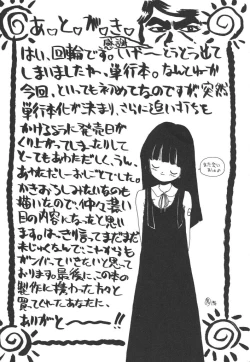 あ。と。が。き。
はい、回輪です。いやーとうとう出て
しまいましたね、単行本。なんというか
今回、といっても初めてなのですが、突然
単行本化が決まり、さらに追い打ちを
かけるように発売日が
くり上がってしまったりして
とてもあわただしく、うん、
あわただしいおしごとでした。
かきおろしみたいなのも
描いたので、仲々濃い
目の内容になったと思い
ます。は、さておいてまだまだ
未じゅくなんで、これからも
ガンバっていきたいと思って
おります。最後に、この本の
製作に携わった方々と
買ってくれたあなたに、
ありがとーーー!!